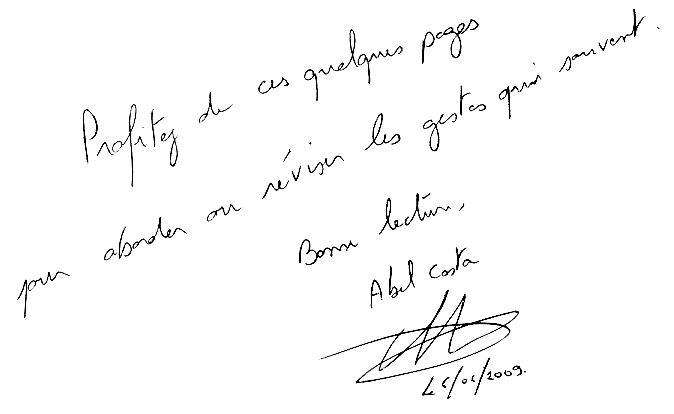 Profitez de ces quelques pages
pour aborder ou réviser les gestes qui sauvent.
Bonne lecture,
Abel Costa